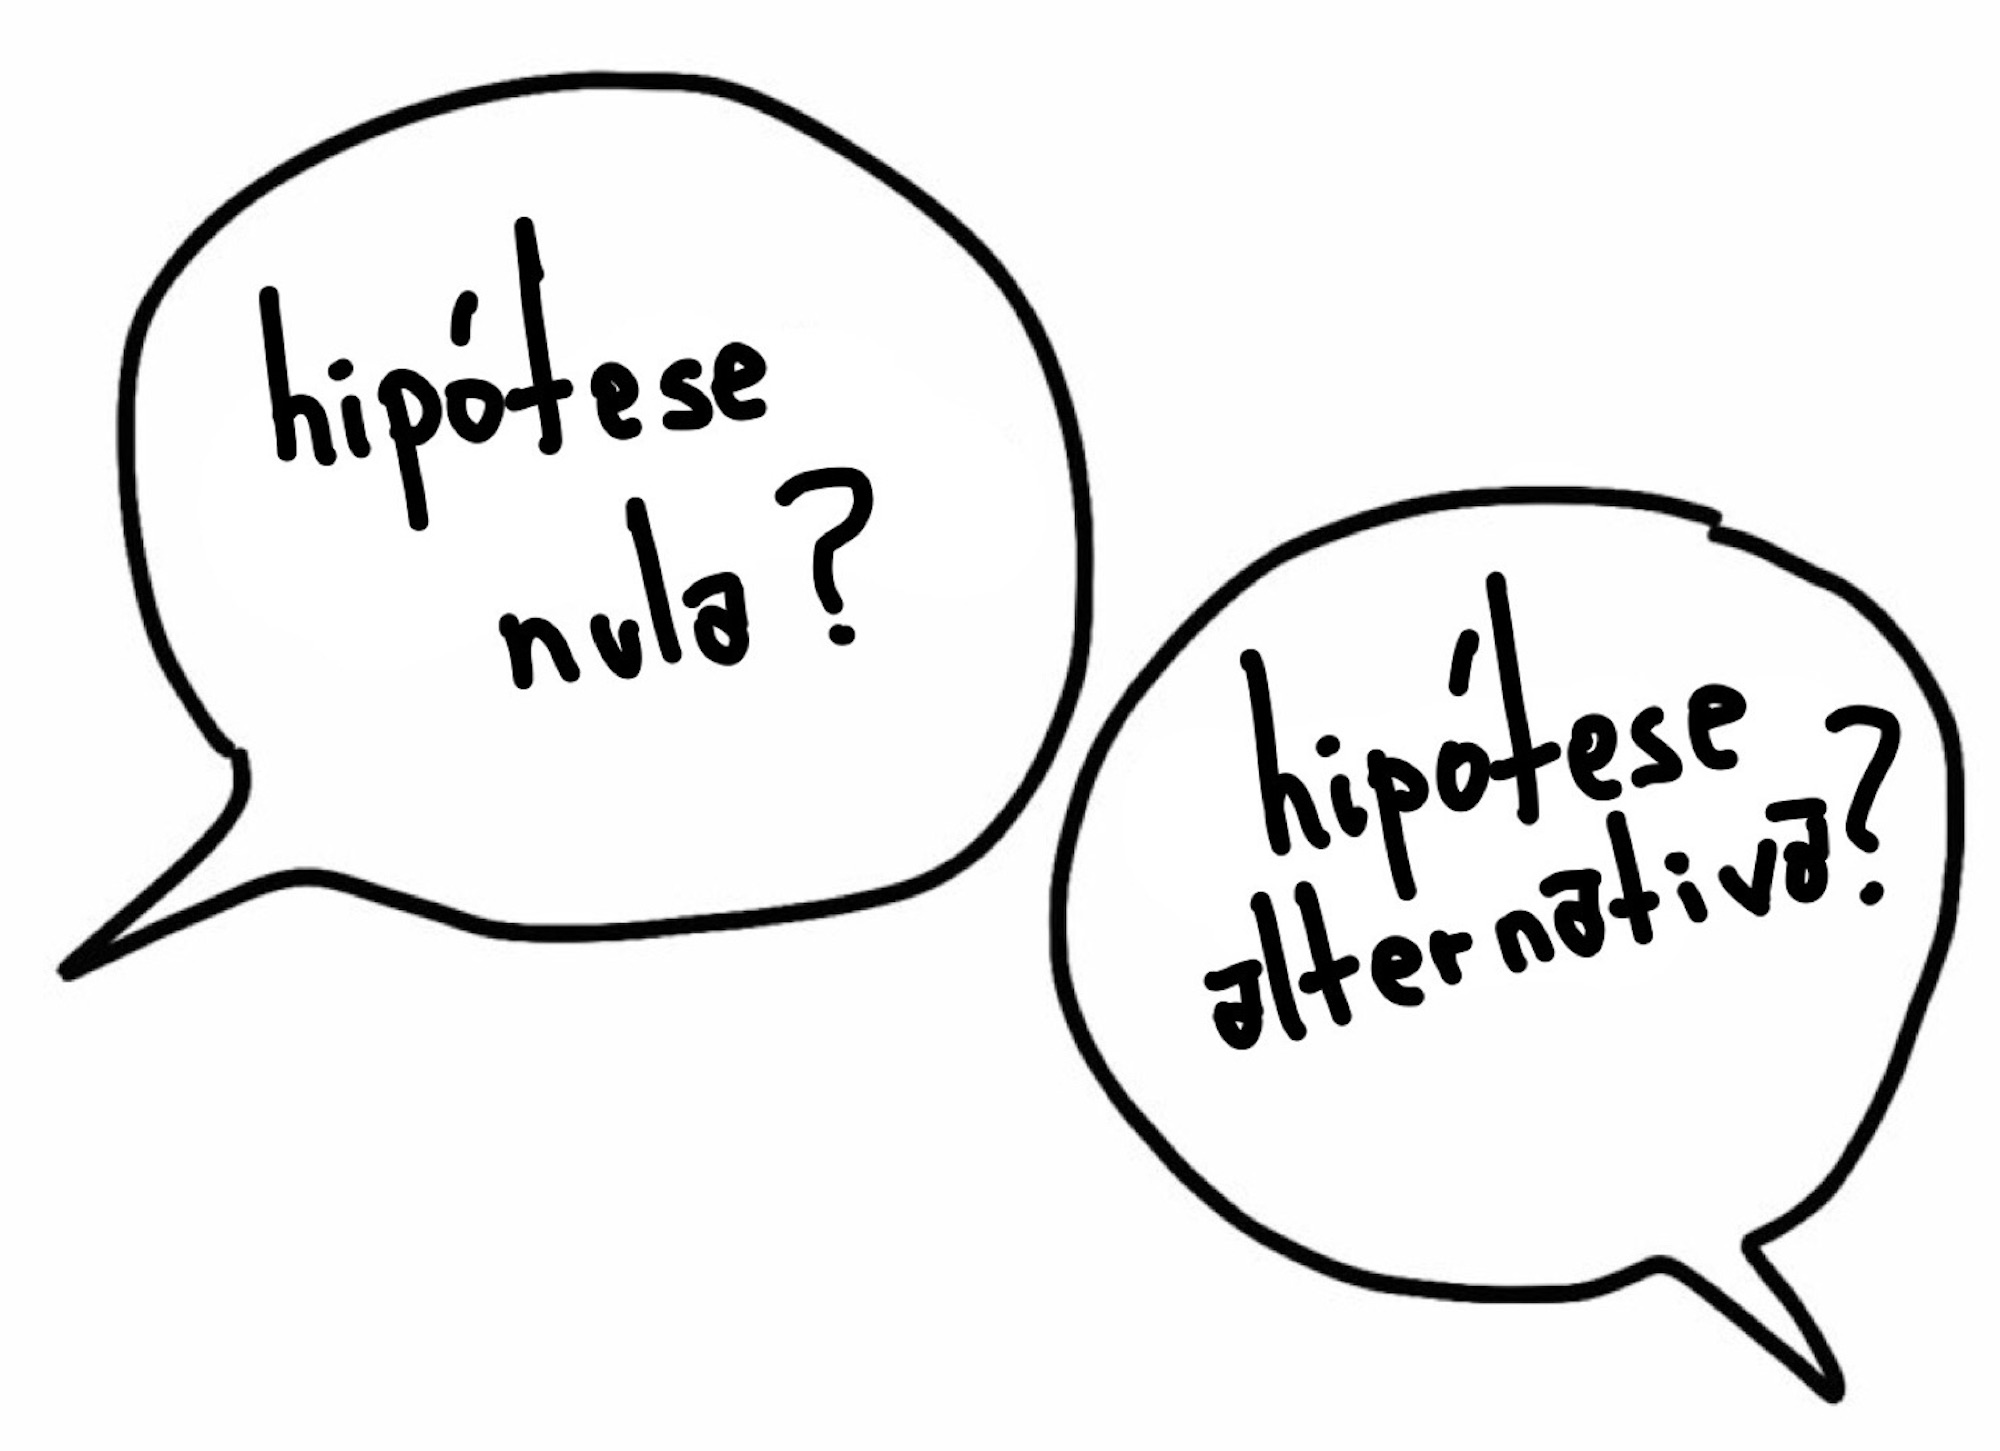 hipótese
nula?
hipótese
alternativa?